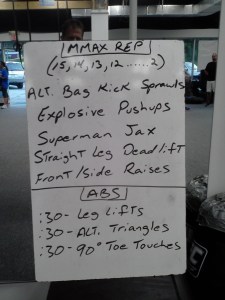 MMAX REP
(15, 14, 13, 12 ...... 2)
ALT. Bag Kick Sprawls
Explosive Pushups
Superman Jax
Straight Leg Deadlift
Front/Side Raises
ABS
:30 - Leg Lifts
:30 - ALT. Triangles
:30 - 90° Toe Touches